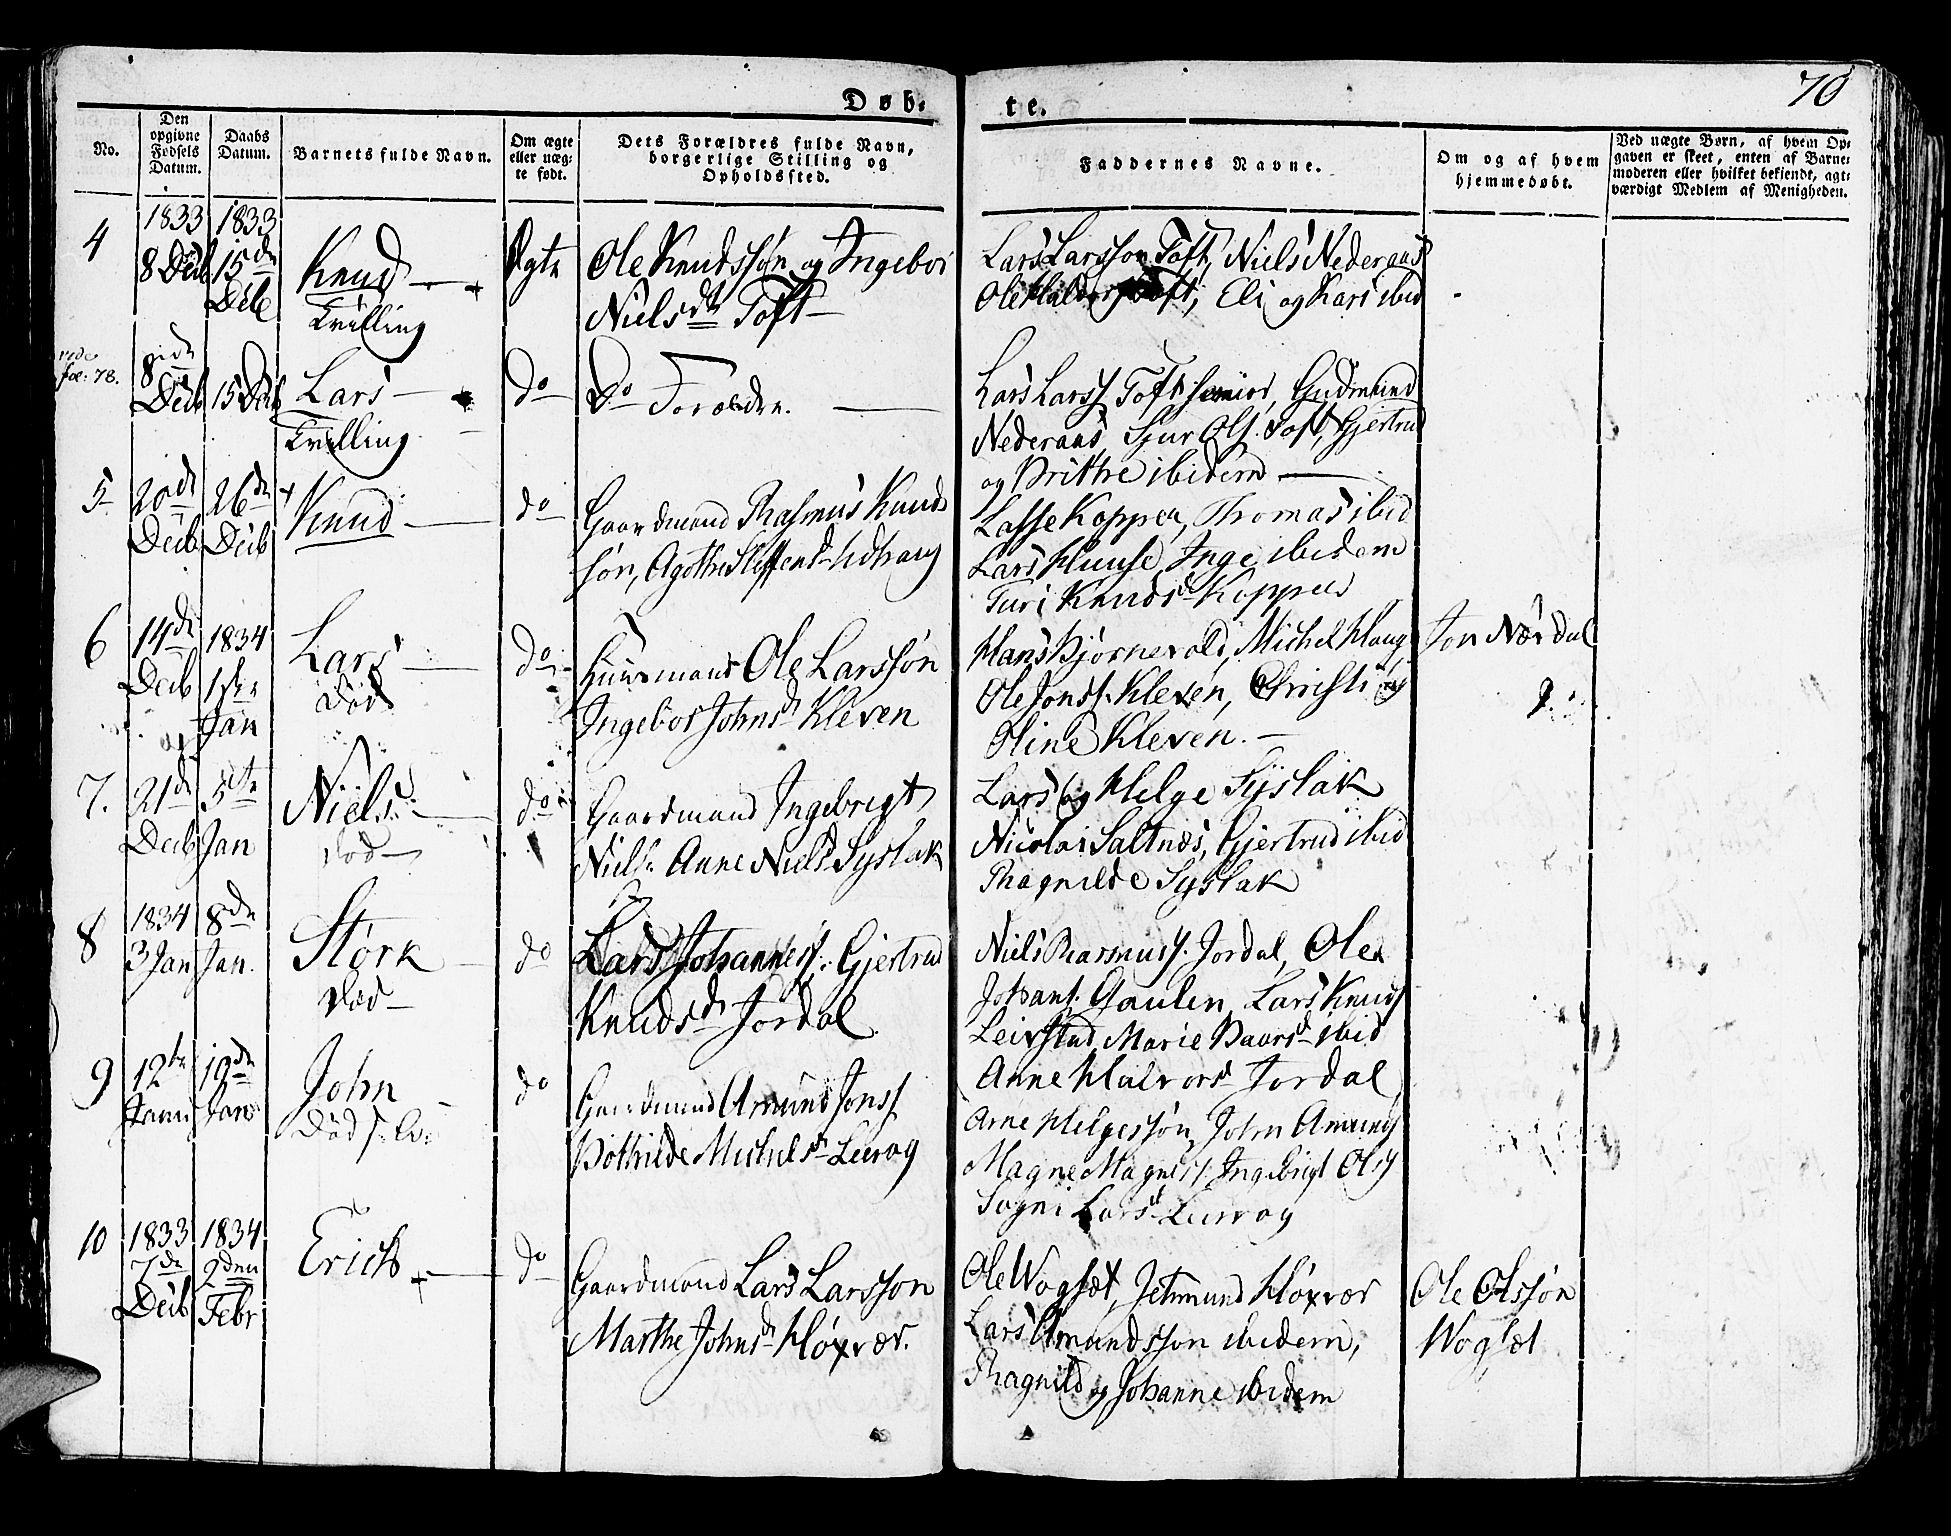 70
Døb-
te.
No.
Den opgivne Fødsels Datum.
Daabs Datum.
Barnets fulde Navn.
Om ægte eller uæg-te født.
Dets Forældres fulde Navn, borgerlige Stilling og Opholdssted.
Faddernes Navne.
Om og af hvem hjemmedøbt.
Ved uægte Børn, af hvem Op-gaven er skeet, enten af Barne-moderen eller hvilket bekiendt, agt-værdigt Medlem af Menigheden.
4
1833
8 Decb
1833
15de
Decb
Knud
Tvilling
Ægte
Ole Knudssøn og Ingebor
Nielsdtr Toft
Lars Larsson Toft, Niels Nederaas
Ole Toft, Eli og Kari ibid
vide
fol: 78.
8de
Decb
15 Decb
Lars
Tvilling
do
Do Forældre.
Lars Larss. Toft Gudmund
Nederaas Sjur Ols. Toft, Gjertrud
og Brithe ibidem
5
20de
Decb
26de
Decb
Knud
do
Gaardmand Rasmus Knud
søn, Agothe Steffensd
Lasse Koppen, Thomas ibid
Lars Huuse, Inge ibidem
Turi Knudsd Koppen
6
14de
Decb
1834
1ste
Jan
Lars
død
do
Huusmand Ole Larssøn
Ingebor Johnsd Kleven
Hans Bjørnevold, Michel Haug
Ole Jonss. Kleven, Christi og
Oline Kleven.
Jon Nørdal
7.
21de
Decb
5te
Jan
Niels
død
do
Gaardmand Ingebrigt
Niels. Anne Nielsd Systak
Lars og Helge Systak
Nicolai Saltnæs, Gjertrud ibid
Ragnilde Systak
8
1834
3 Jan
8de
Jan.
Størk
død
do
Lars Johanness. Gjertrud
Knudsd Jordal
Niels Rasmuss. Jordal, Ole
Johans. Gaulen, Lars Knuds
Leirstad, Marie ibid
Anne Halvorsd Jordal
9
12te
Januar
19de
Jan
John
død
do
Gaardmand Amund Jonss
Bothilde Michelsd Leirog
Arne Helgessøn, John Amunds
Magne Magness. Ingebrigt Ols
Sogni Larsd Leirog
10
1833
7de
Decb
1834
2den
Febr
Erich
do
Gaardmand Lars Larsson
Marthe Johnsd Høyvær.
Ole Wogsæt, Jetmund Høyvær
Lars Amundsson ibidem,
Ragnild og Johanne ibidem
Ole Olssøn
Wogsæt